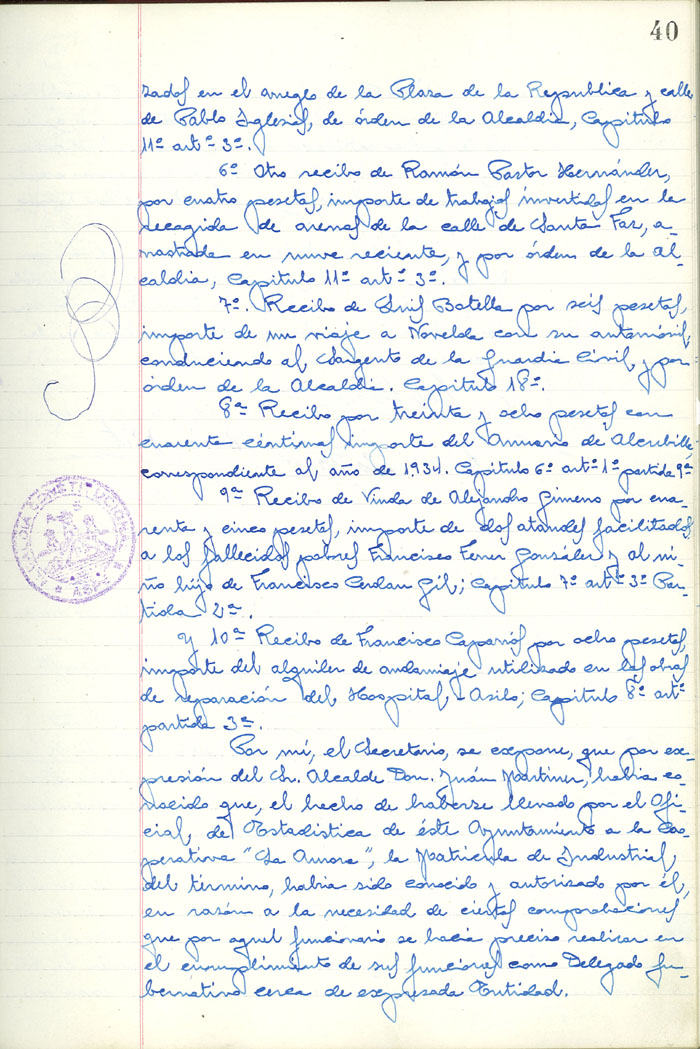 40
zados en el arreglo de la Plaza de la Republica y calle
de Pablo Iglesias, de órden de la Alcaldia, Capitulo
11º artº 3º.
6º Otro recibo de Ramón Pastor Hernández,
por cuatro pesetas, importe de trabajos invertidos en la
recogida de arenas de la calle de Santa Faz, a-
rrastrada en nuve reciente, y por órden de la Al-
caldia, Capitulo 11º artº 3º.
7º. Recibo de Luis Botella por seis pesetas,
importe de un viaje a Novelda con su automóvil
conduciendo al Sargento de la Guardia Civil, y por
órden de la Alcaldia. Capitulo 18º.
8º Recibo por treinta y ocho pesetas con
cuarenta céntimos importe del Anuario de Alcubilla,
correspondiente al año de 1934. Capítulo 6º artº 1º partida 9ª
9º Recibo de Viuda de Alejandro Gimeno por cua-
renta y cinco pesetas, importe de dos ataudes facilitados
a los fallecidos pobres Francisco Ferrer González y al ni-
ño hijo de Francisco Cerdan Gil; Capitulo 7º artº 3º Par-
tida 2ª.
Y 10º Recibo de Francisco Caparrós por ocho pesetas,
importe del alquiler de andamiaje utilizado en las obras
de reparación del Hospital-Asilo; Capitulo 8º artº
partida 3ª.
Por mí, el Secretario, se expone, que por ex-
presión del Sr. Alcalde Don Juán Martinez, habia co-
nocido que, el hecho de haberse llevado por el Ofi-
cial, de Estadistica de éste Ayuntamiento a la Coo-
perativa "La Amora", la Matricula de Industrial,
del término, habia sido conocido y autorizado por él,
en razón a la necesidad de ciertas comprobaciones
que por aquel funcionario se hacia preciso realizar en
el cumplimiento de sus funciones como Delegado gu-
bernativo cerca de expresada Entidad.
ALCALDIA CONSTITUCIONAL